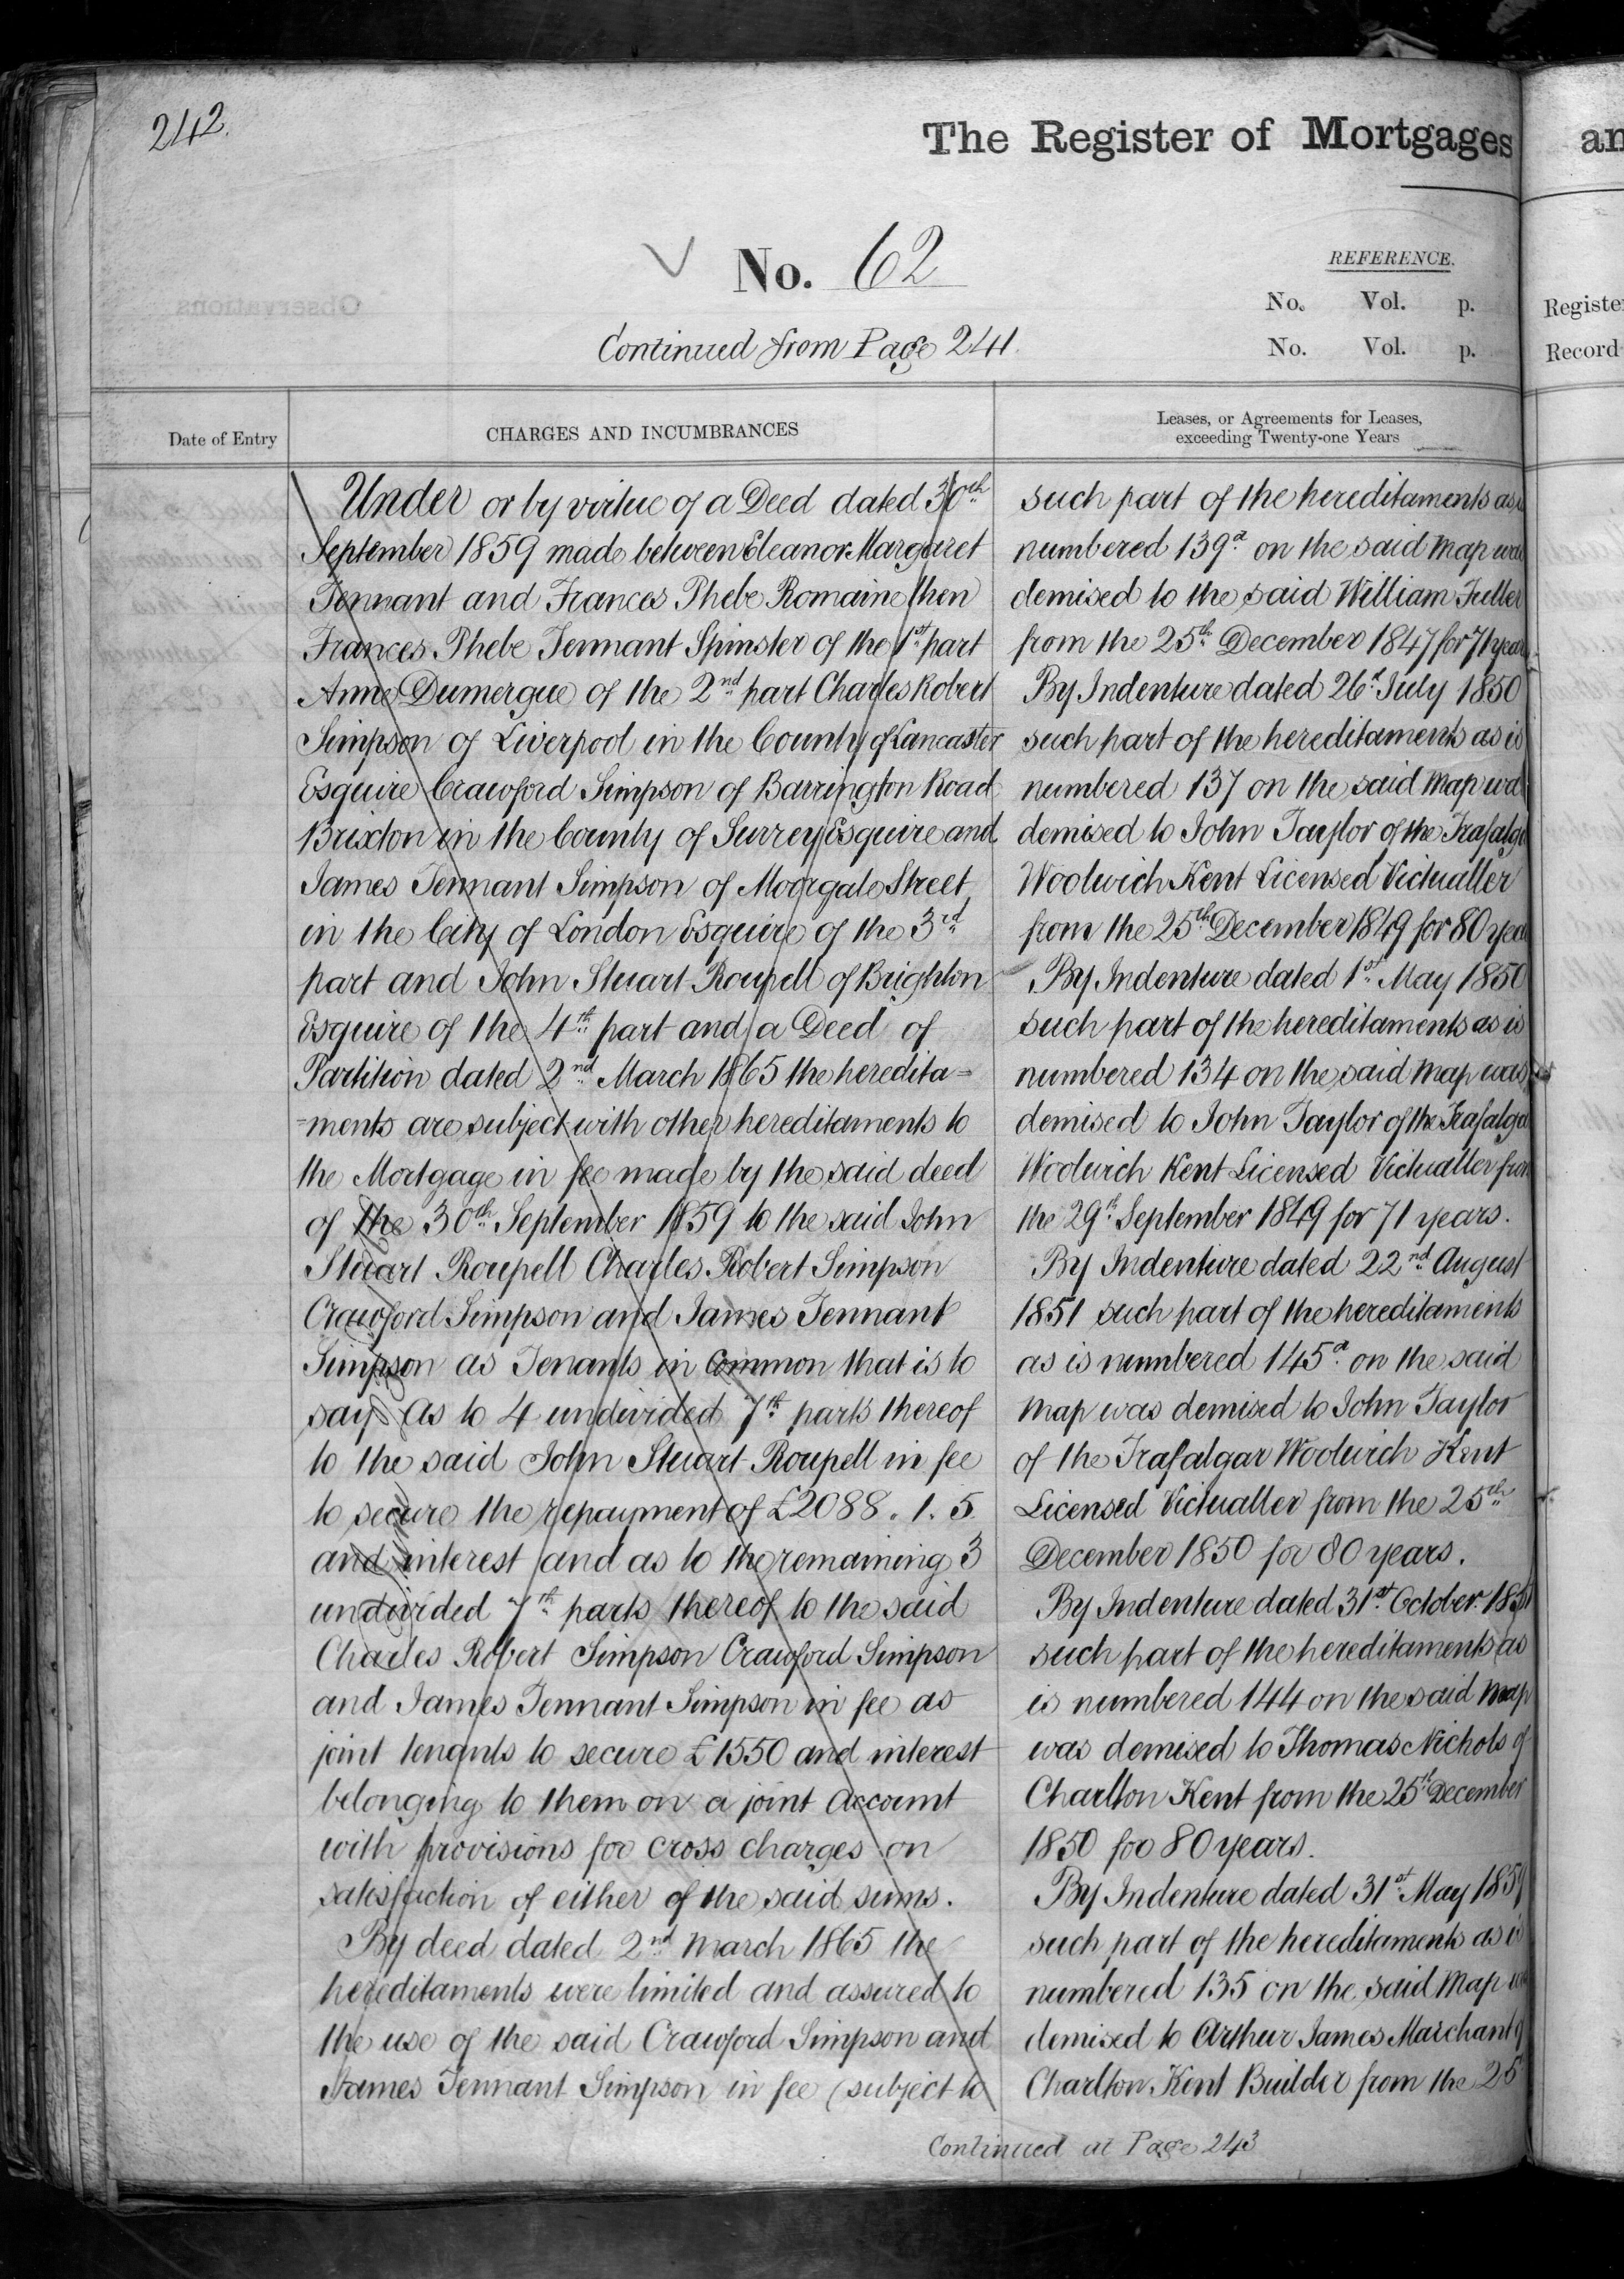 242.
The Register of Mortgages
No. 62
REFERENCE.
No. Vol. p.
No. Vol. p.
Continued from Page 241.
Date of Entry
CHARGES AND INCUMBRANCES
Under or by virtue of a Deed dated 30th
September 1859 made between Eleanor Margaret
Tennant and Frances Phebe Romaine then
Frances Phebe Tennant Spinster of the 1st part
Anne Dumergue of the 2nd part Charles Robert
Simpson of Liverpool in the County of Lancaster
Esquire Crawford Simpson of Barrington Road
Brixton in the County of Surrey Esquire and
James Tennant Simpson of Moorgate Street
in the City of London Esquire of the 3rd
part and John Stuart Roupell of Brighton
Esquire of the 4th part and a Deed of
Partition dated 2nd March 1865 the heredita=
=ments are subject with other hereditaments to
the Mortgage in fee made by the said deed
of the 30th September 1859 to the said John
Stuart Roupell Charles Robert Simpson
Crawford Simpson and James Tennant
Simpson as Tenants in Common that is to
say As to 4 undivided 7th parts thereof
to the said John Stuart Roupell in fee
to secure the repayment of £2088. 1. 5
and interest and as to the remaining 3
undivided 7th parts thereof to the said
Charles Robert Simpson Crawford Simpson
and James Tennant Simpson in fee as
joint tenants to secure £1550 and interest
belonging to them on a joint account
with provisions for cross charges on
satisfaction of either of the said sums.
By deed dated 2nd March 1865 the
hereditaments were limited and assured to
the use of the said Crawford Simpson and
James Tennant Simpson in fee (subject to
Leases, or Agreements for Leases,
exceeding Twenty-one Years
such part of the hereditaments as
numbered 139a on the said Map
demised to the said William Fuller
from the 25th December 1847 for 71 year
By Indenture dated 26th July 1850
such part of the hereditaments as is
numbered 137 on the said Map
demised to John Taylor of the
Woolwich Kent Licensed Victualler
from the 25th December 1849 for 80
By Indenture dated 1st May 1850
such part of the hereditaments as is
numbered 134 on the said Map was
demised to John Taylor of the
Woolwich Kent Licensed Victualler
the 29th September 1849 for 71 years.
By Indenture dated 22nd August
1851 such part of the hereditaments
as is numbered 145a on the said
Map was demised to John Taylor
of the Trafalgar Woolwich Kent
Licensed Victualler from the 25th
December 1850 for 80 years.
By Indenture dated 31st October
such part of the hereditaments as
is numbered 144 on the said Map
was demised to Thomas Nichols of
Charlton Kent from the 25th December
1850 for 80 years.
By Indenture dated 31st May
such part of the hereditaments as is
numbered 135 on the said Map
demised to Arthur James Marchant of
Charlton Kent Builder from the 25
Continued at Page 243
an
Record